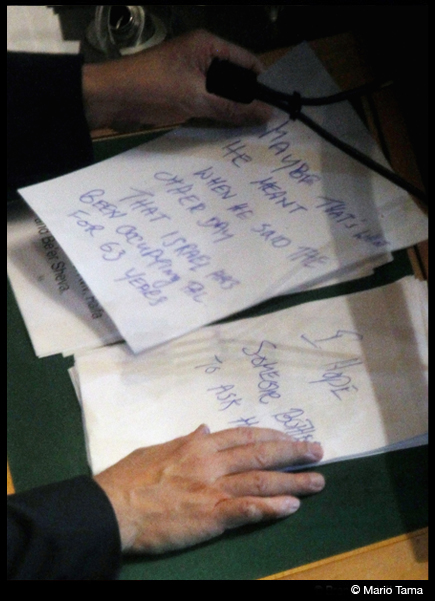 MAYBE THAT'S WHAT
HE MEANT
WHEN HE SAID THE
OTHER DAY
THAT ISRAEL HAS
BEEN OCCUPYING PAL
FOR 63 YEARS
I HOPE
SOMEONE BOTHE
TO ASK H
Beer Sheva
© Mario Tama